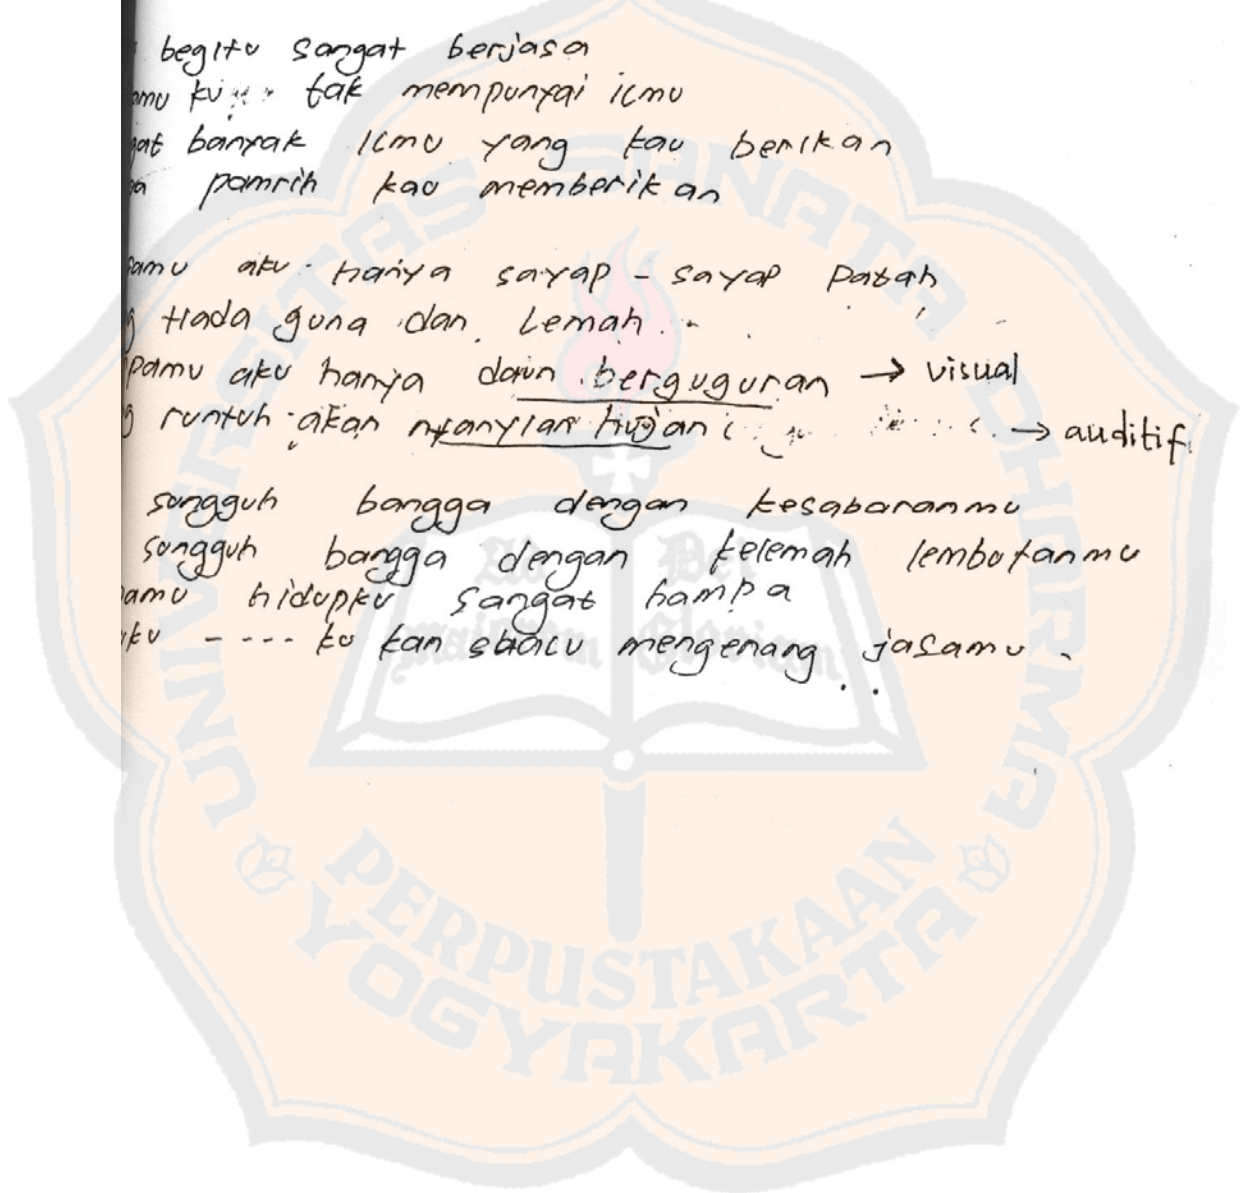 begitu sangat berjasa
amu ku tak mempunyai ilmu
gat banyak ilmu yang kau berikan
pa pamrih kau memberikan
pamu aku hanya sayap - sayap patah
g tiada guna dan lemah.
pamu aku hanya daun berguguran → visual
g runtuh akan nyanyian hujan → auditif
sungguh bangga dengan kesabaranmu
sungguh bangga dengan kelemah lembutanmu
pamu hidupku sangat hampa
aku ---- ku kan selalu mengenang jasamu.
UNIVERSITAS SANATA DHARMA
Ad Dei
Maiorem Gloriam
PERPUSTAKAAN
YOGYAKARTA